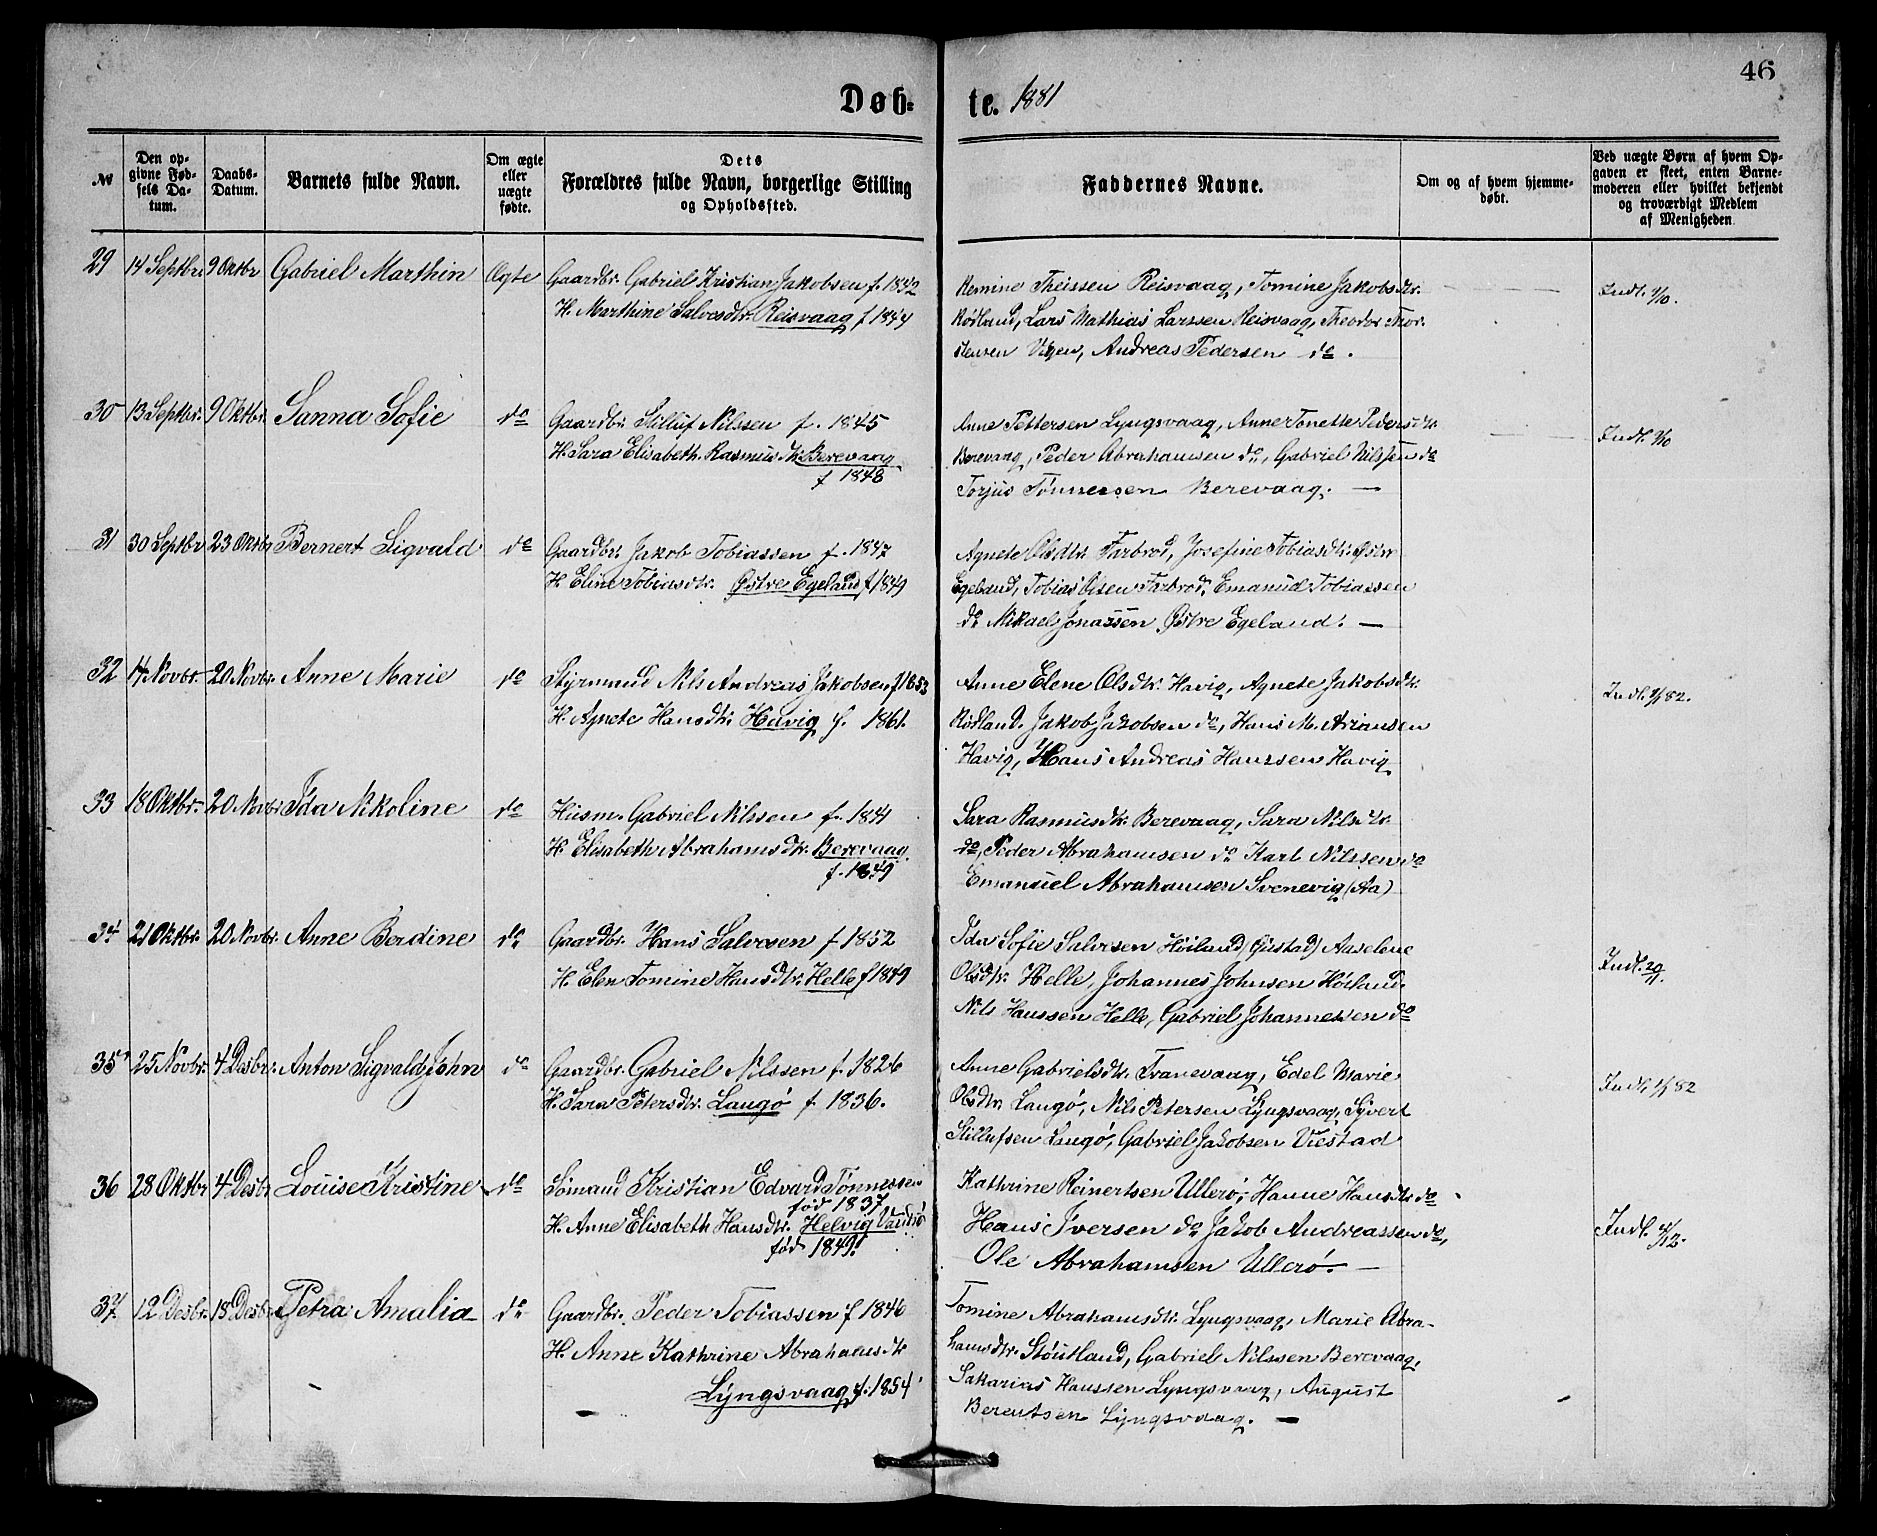 46
Døb- te. 1881
№
Den op-
givne Fød-
sels Da-
tum.
Daabs-
Datum.
Barnets fulde Navn.
Om ægte
eller
uægte
fødte.
Dets
Forældres fulde Navn, borgerlige Stilling
og Opholdssted.
Faddernes Navne.
Om og af hvem hjemme-
døbt.
Ved uægte Børn af hvem Op-
gaven er skeet, enten Barne-
moderen eller hvilket bekjendt
og troværdigt Medlem
af Menigheden.
29 14 Septbr 9 Oktbr Gabriel Marthin Ægte
Gaardbr. Gabriel Kristian Jakobsen f. 1842
H. Marthine Salvesdtr. Reisvaag f 1844
Theissen Reisvaag, Tomine Jakobsdtr.
Rødland, Lars Mathias Larssen Reisvaag, Theodor Thor-
stensen Vigen, Andreas Pedersen do.
Indl. 9/10.
30 13 Septbr. 9 Oktbr. Sanna Sofie do
Gaardbr. Stilluf Nilssen f. 1845
H. Sara Elisabeth Rasmusdtr. Berevaag
f 1848
Anne Pettersen Lyngsvaag, Anne Tonette Pedersdtr.
Berevaag, Peder Abrahamsen do., Gabriel Nilssen do
Torjus Tønnessen Berevaag. —
Indl. 9/10
31 30 Septbr 23 Oktbr Bernert Sigvald do
Gaardbr. Jakob Tobiassen f. 1847
H. Eline Tobiasdtr. Østre Egeland f 1849
Agnete Olsdtr. Farbrod, Josefine Tobiasdtr. Østre
Egeland, Tobias Olsen Farbrod, Emanuel Tobiassen
do. Mikael Jonassen Østre Egeland. —
32 14 Novbr. 20 Novbr. Anne Marie do
Styrmand Nils Andreas Jakobsen f 1852
H. Agnete Hansdtr. Havig f. 1861.
Anne Elene Olsdtr. Havig, Agnete Jakobsdtr.
Rødland, Jakob Jakobsen do, Hans M. Ariansen
Havig, Hans Andreas Hanssen Havig
33 18 Oktbr. 20 Novbr. Ida Nikoline do
Husm. Gabriel Nilssen f. 1841
H. Elisabeth Abrahamsdtr. Berevaag.
f. 1849
Sara Rasmusdtr. Berevaag, Sara Nilsdtr.
do, Peder Abrahamsen do Karl Nilssen do
Emanuel Abrahamsen Svenevig (Aa)
34 21 Oktbr. 20 Novbr. Anne Berdine do.
Gaardbr. Hans Salvesen f 1852
H. Elen Tomine Hansdtr. Helle f 1849
Ida Sofie Salvesen Høiland (Gustad) Aaselene
Olsdtr. Helle, Johannes Johnsen Høiland.
Nils Hanssen Helle, Gabriel Johannesen do
35 25 Novbr. 4 Desbr. Anton Sigvald John do
Gaardbr. Gabriel Nilssen f. 1826
H. Sara Petersdtr. Langø f 1836.
Anne Gabrielsdtr. Tranevaag, Edel Marie
Olsdtr Langø, Nils Petersen Lyngsvaag, Syvert
Stillufsen Langø, Gabriel Jakobsen Viestad
36 28 Oktbr 4 Desbr Louise Kristine do
Sømand Kristian Edvard Tønnessen
fød 1837
H. Anne Elisabeth Hansdtr. Helvig Vandsø
fød 1849.
Kathrine Reinertsen Ullerø, Hanne Hansdtr. do
Hans Iversen do Jakob Andreassen do,
Ole Abrahamsen Ullerø. —
Indl. 4/12.
37 12 Desbr. 18 Desbr. Petra Amalia do
Gaardbr. Peder Tobiassen f 1846
H. Anne Kathrine Abrahamsdtr
Lyngsvaag f. 1854
Tomine Abrahamsdtr. Lyngsvaag, Marie Abra-
hamsdtr. Støutland, Gabriel Nilssen Berevaag,
Sakarias Hanssen Lyngsvaag, August
Berentsen Lyngsvaag. —